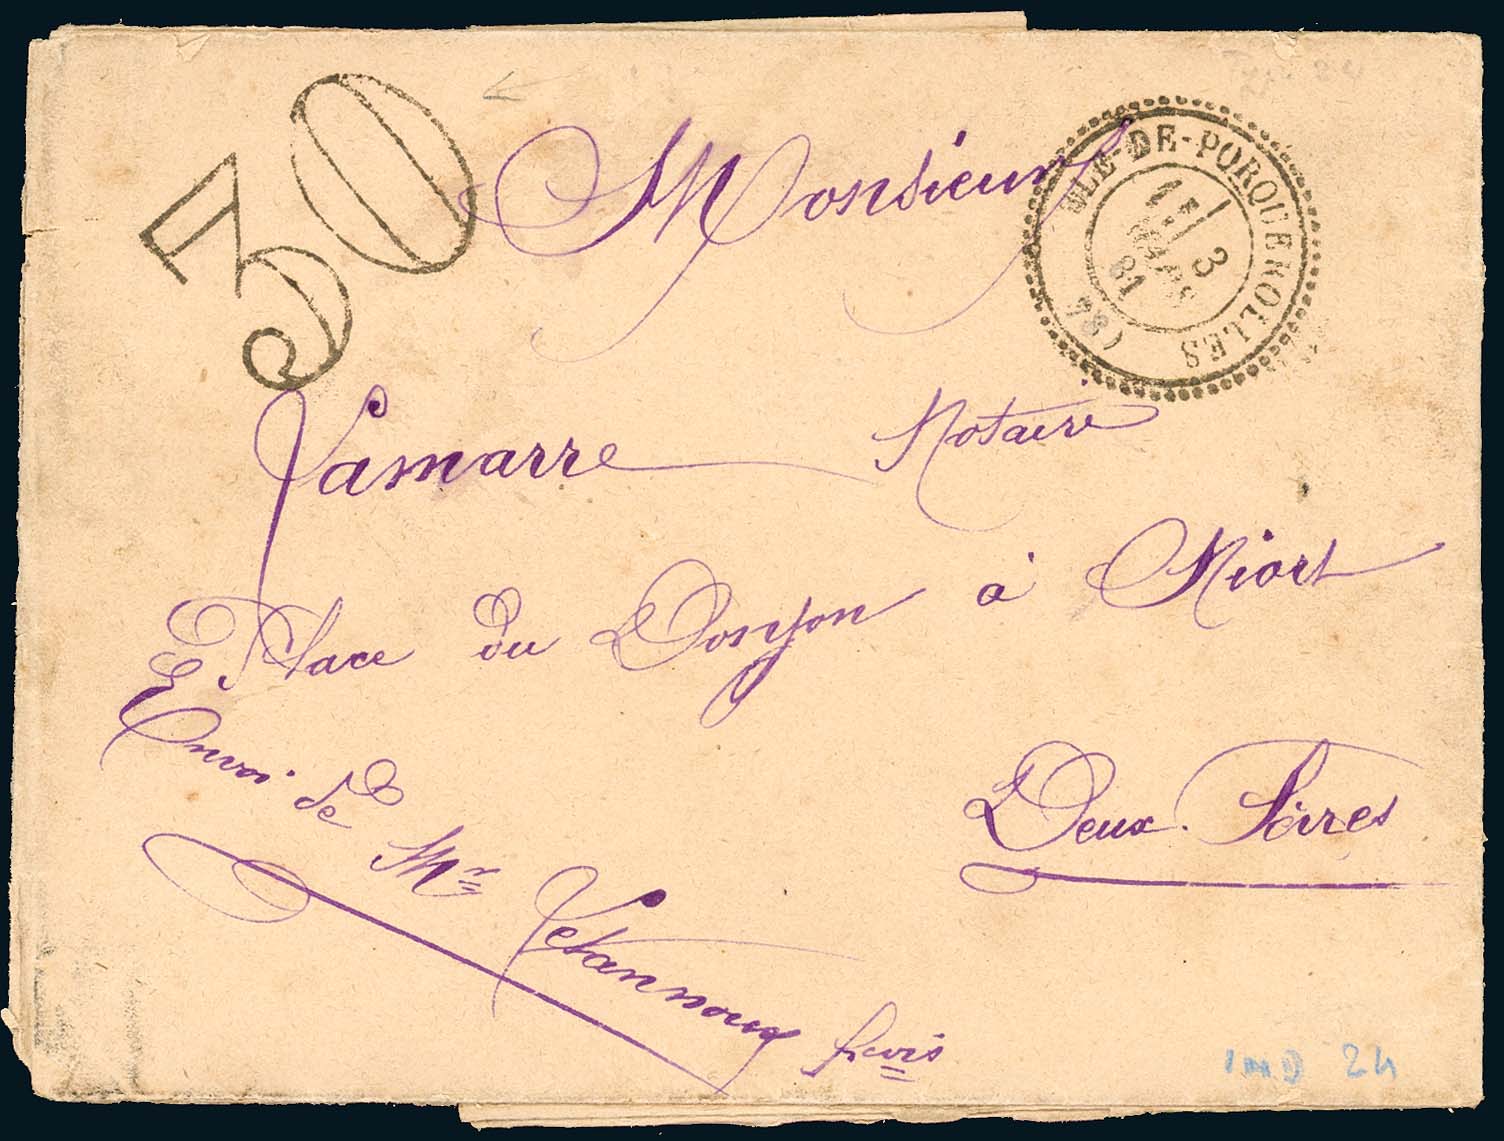 30
Monsieur
ILE-DE-PORQUEROLLES
3
MARS
81
(84
Lamarre Notaire
Place du Donjon à Niort
Deux-Sèvres
Envoi de Mr
IND 24